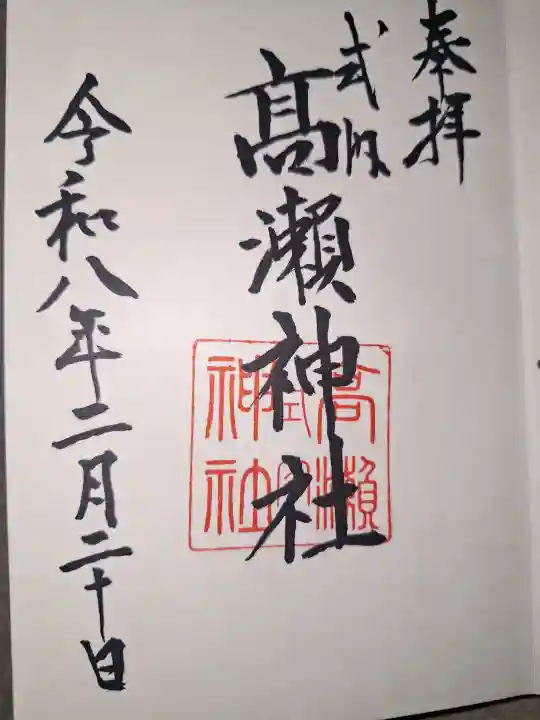 奉拝
式内
髙瀬神社
令和八年二月二十日
式内
高瀬
神社